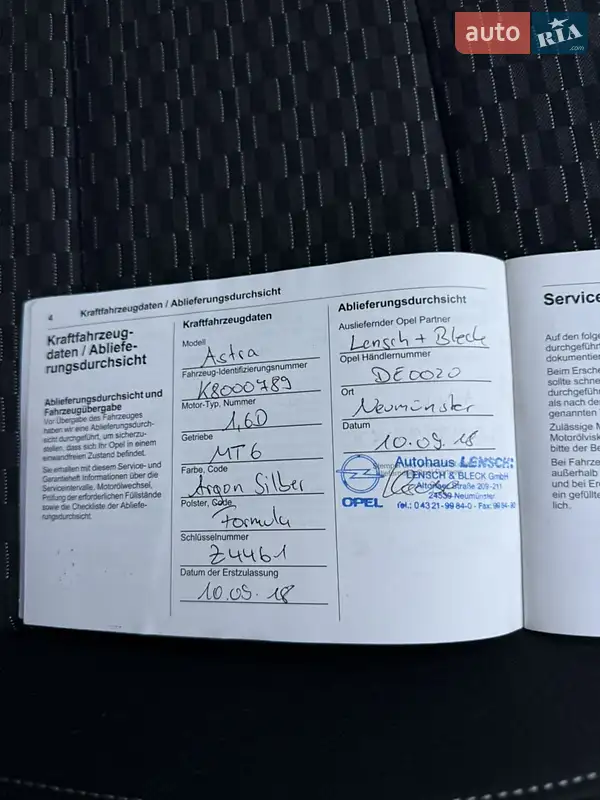 auto RIA .com
4 Kraftfahrzeugdaten / Ablieferungsdurchsicht
Kraftfahrzeug-
daten / Abliefe-
rungsdurchsicht
Ablieferungsdurchsicht und
Fahrzeugübergabe
Vor Übergabe des Fahrzeuges
haben wir eine Ablieferungsdurch-
sicht durchgeführt, um sicherzu-
stellen, dass sich Ihr Opel in einem
einwandfreien Zustand befindet.
Sie erhalten mit diesem Service- und
Garantieheft Informationen über die
Serviceintervalle, Motorölwechsel,
Prüfung der erforderlichen Füllstände
sowie die Checkliste der Abliefe-
rungsdurchsicht.
Kraftfahrzeugdaten
Modell
Astra
Fahrzeug-Identifizierungsnummer
K8000789
Motor-Typ, Nummer
1,6D
Getriebe
MT6
Farbe, Code
Argon Silber
Polster, Code
Formula
Schlüsselnummer
Z4461
Datum der Erstzulassung
10.09.18
Ablieferungsdurchsicht
Ausliefernder Opel Partner
Lensch + Bleck
Opel Händlernummer
DE0020
Ort
Neumünster
Datum
10.09.18
Autohaus LENSCH
LENSCH & BLECK GmbH
Altonaer Straße 209-211
24539 Neumünster
Tel.: 0 43 21 - 99 84-0 - Fax: 99 84-90
OPEL
Service
Auf den folge
durchgeführt
dokumentier
Beim Ersche
sollte schne
durchgeführ
als nach des
genannten
Zulässige M
Motorölvisk
bitte der Be
Bei Fahrze
außerhalb
und bei Er
ein gefüllte
lich.